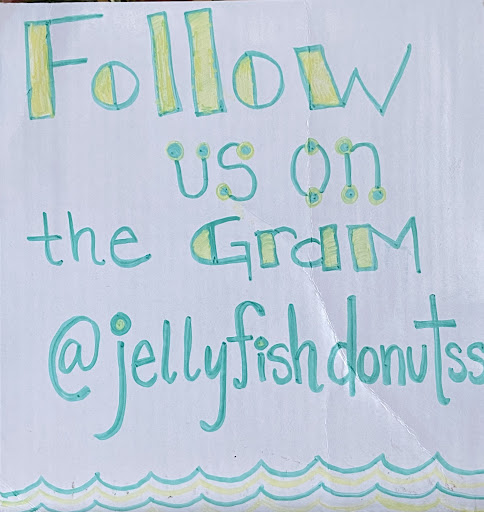 Follow
us on
the Gram
@jellyfishdonutss